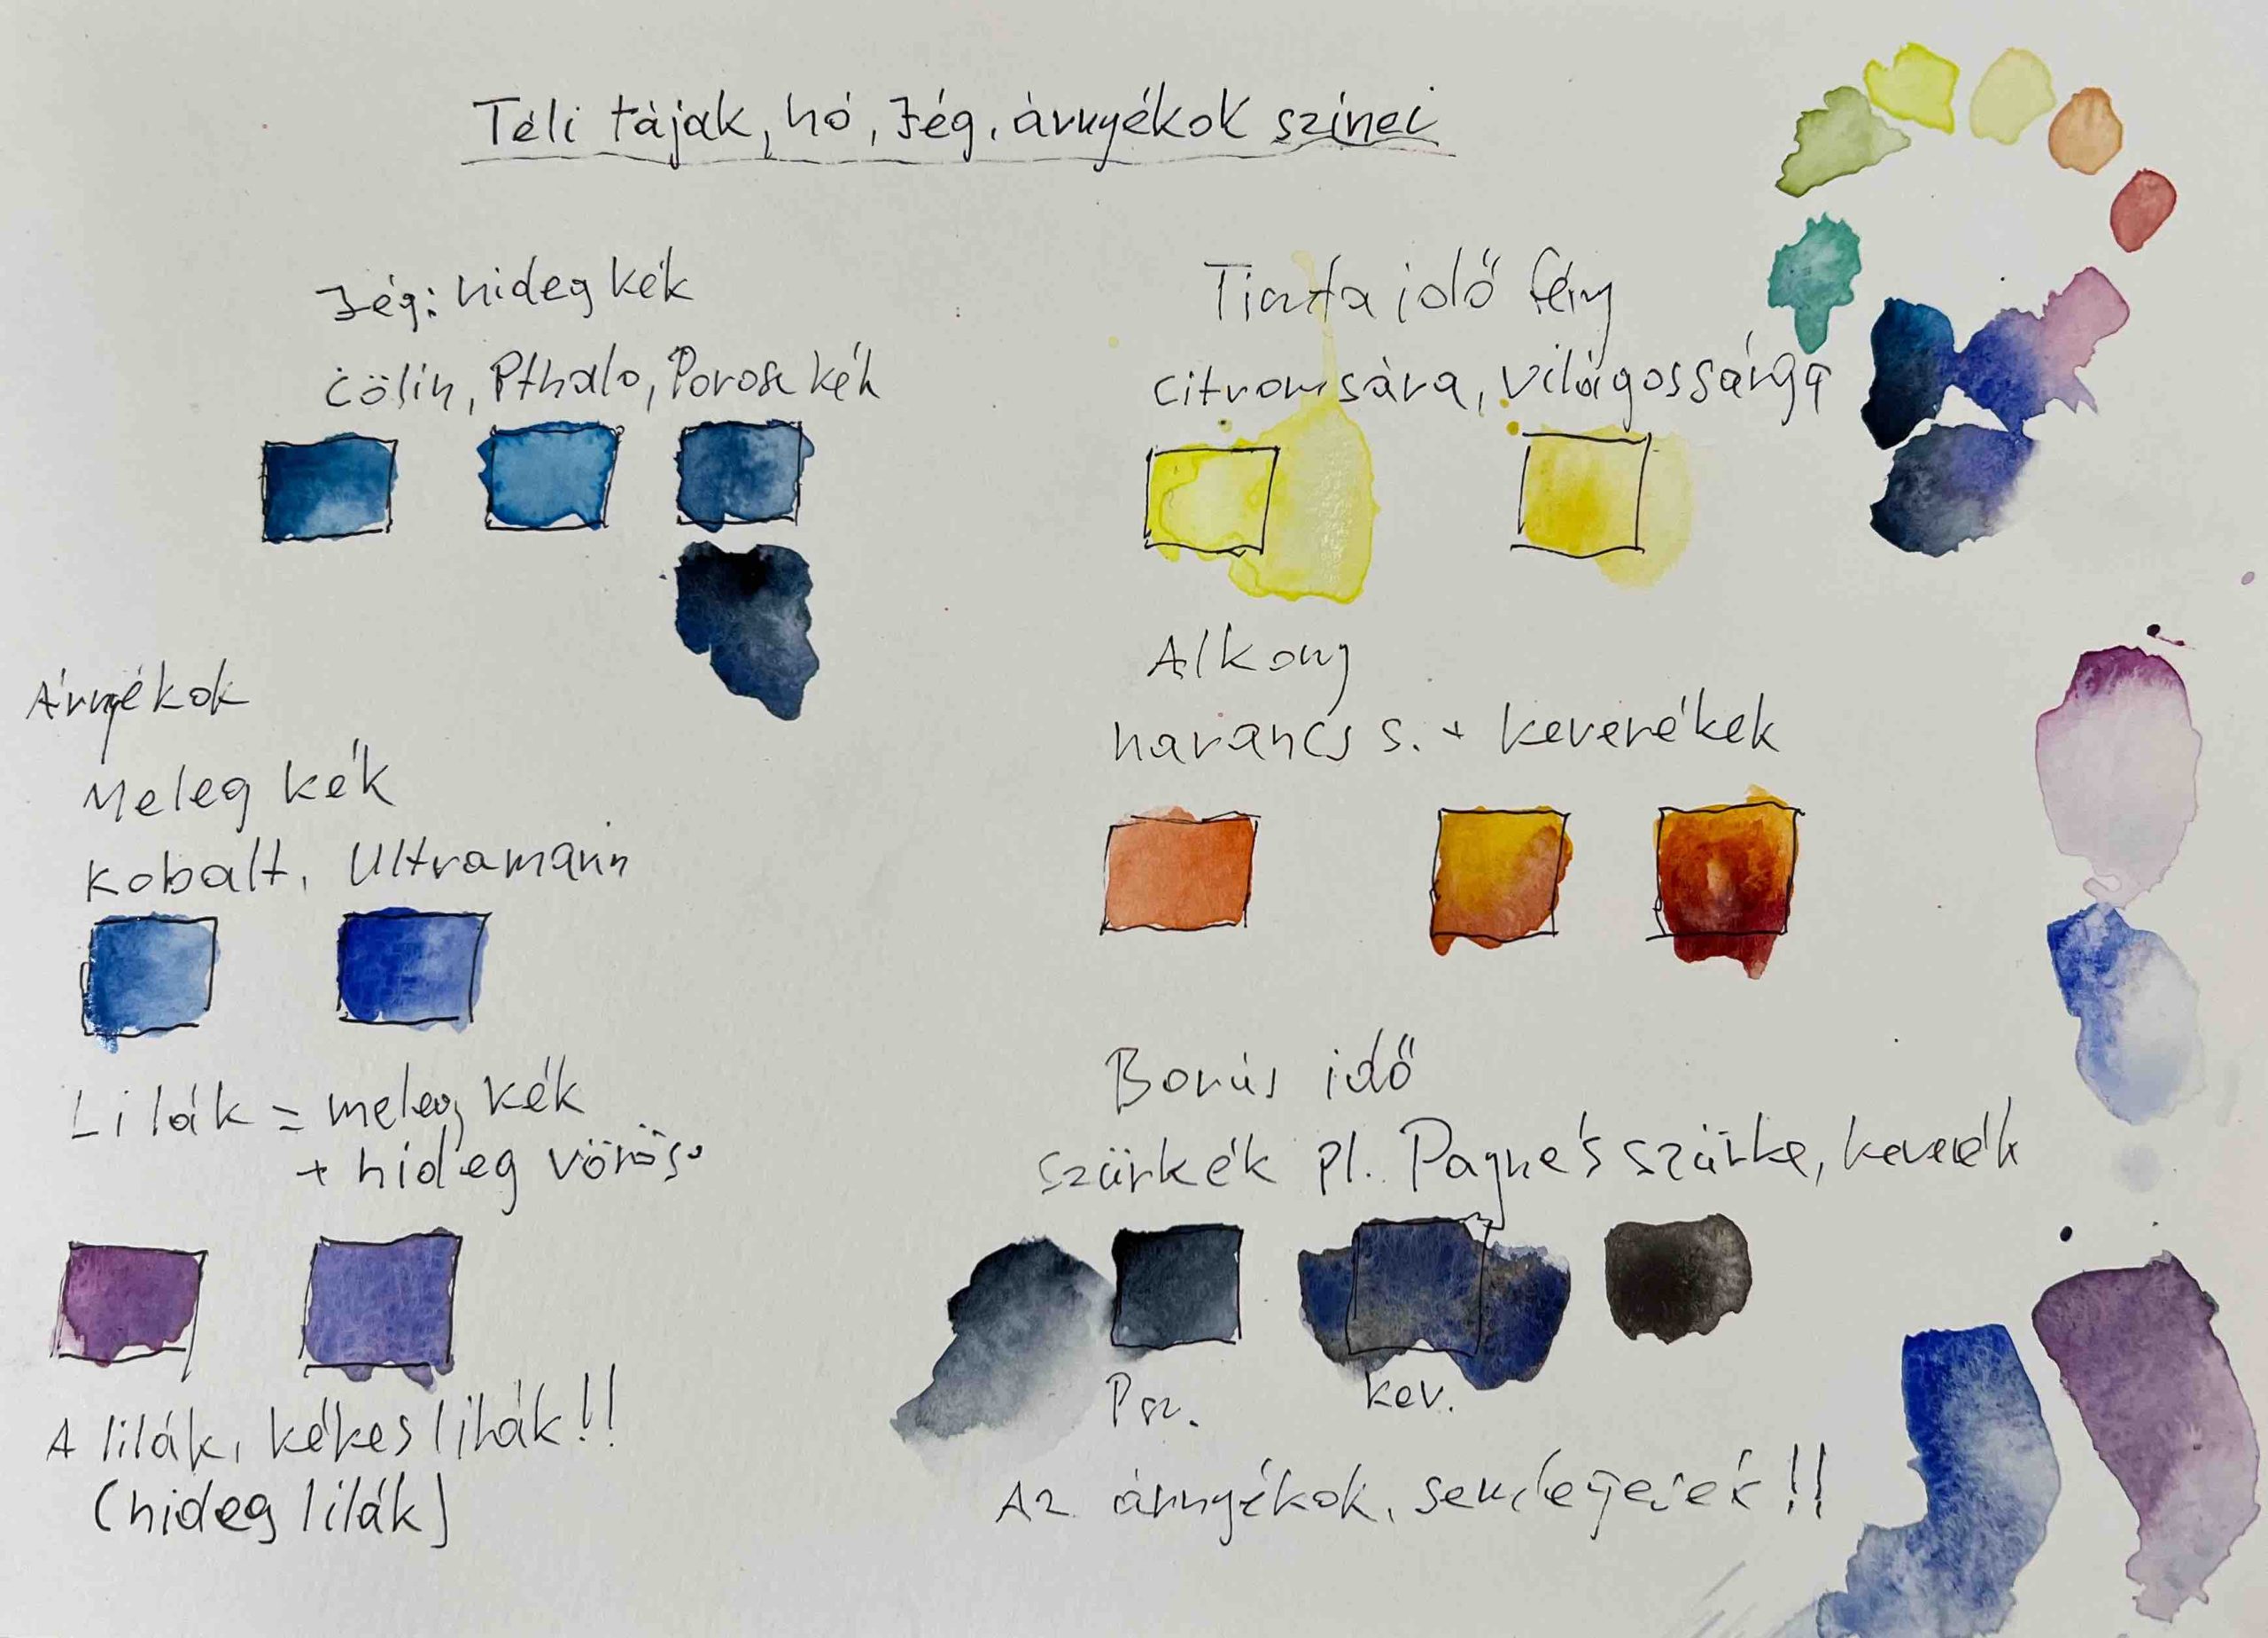 Téli tájak, hó, Jég, árnyékok színei
Jég: hideg kék
cölin, Pthalo, Porosz kék
Árnyékok
Meleg kék
Kobalt, Ultramarin
Lilák = meleg kék
+ hideg vörös
A lilák, kékes lilák!!
(hideg lilák)
Tiszta idő fény
citromsára, világossárga
Alkony
narancs s. + keverékek
Borús idő
szürkék pl. Payne's szürke, keverék
Psz. kev.
Az árnyékok, semlegesek!!